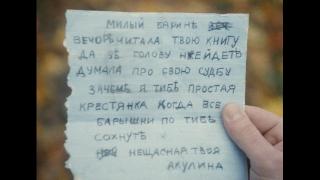 МИЛЫЙ БАРИНЪ
ВЕЧОРЪ ЧИТАЛА ТВОЮ КНИГУ
ДА УЪ ГОЛОВУ НЪЙДЕТЪ
ДУМАЛА ПРО СВОЮ СУДБУ
ЗАЧЕМЪ Я ТИБЪ ПРОСТАЯ
КРЕСТЯНКА КОГДА ВСЕ
БАРЫШНИ ПО ТИБЪ
СОХНУТЪ
НЕЩАСНАЯ ТВОЯ
АКУЛИНА